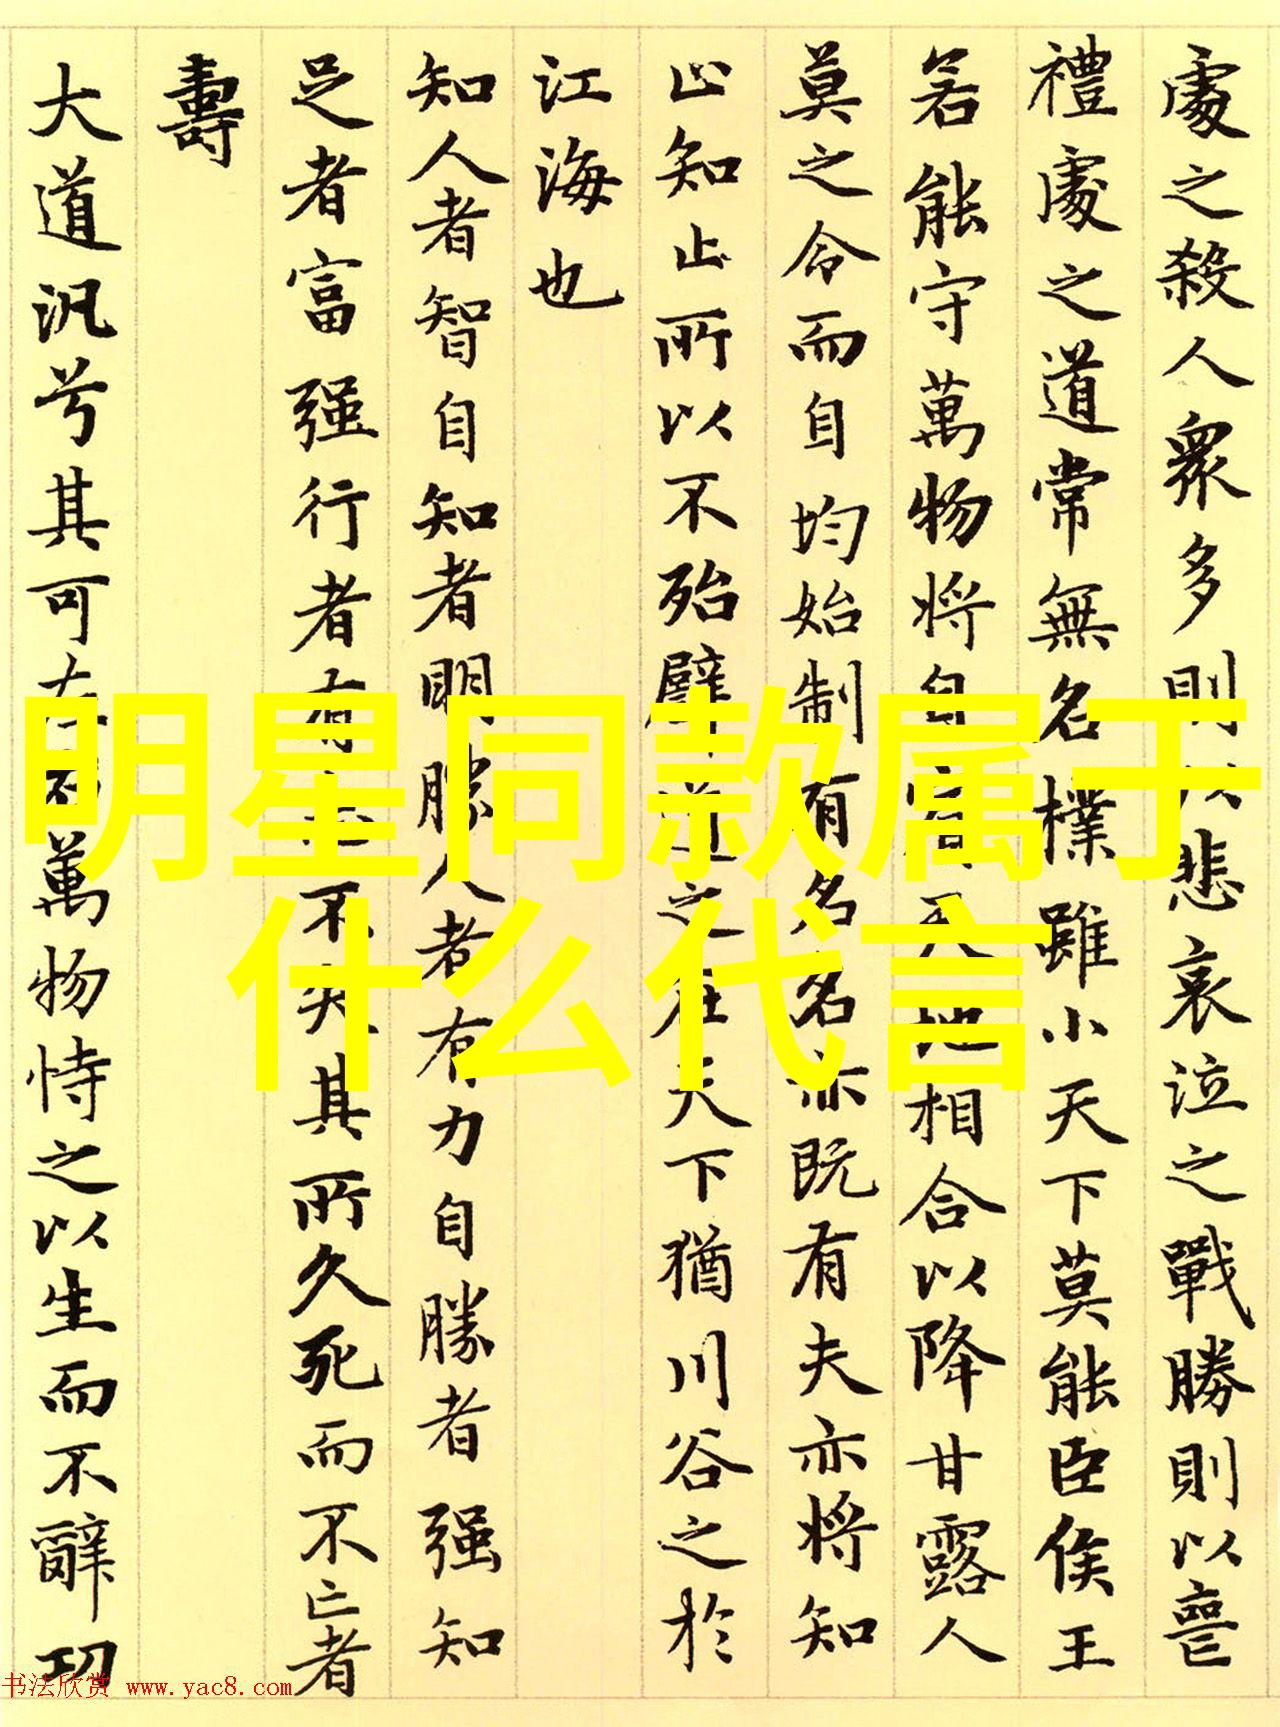 處之殺人衆多則以悲哀泣之戰勝則以喪
禮處之道常無名樸雖小天下莫能臣侯王
若能守萬物將自賓天地相合以降甘露人
莫之令而自均始制有名名亦既有夫亦將知
止知止所以不殆譬道之在天下猶川谷之於
江海也
知人者智自知者明勝人者有力自勝者强知
足者富强行者有志不失其所久死而不亡者
壽
大道汎兮其可左右萬物恃之以生而不辭功
明星同款属于
什么代言
书法欣赏 www.yac8.com